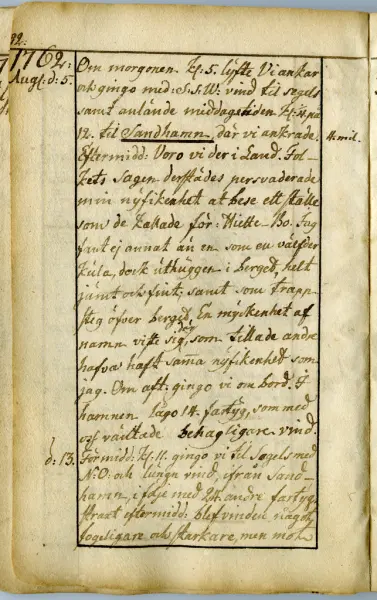 92.
1762:
Aug: d: 5.
Om morgonen Kl: 5. lyfte Vi ankar
och gingo med: S: S: W: vind til segels
samt anlände middagstiden Kl:
12. til Sandhamn, där vi ankrade.
4: mil.
Eftermidd: Voro vi der i Land. Fol-
kets Sagen derstädes persvaderade
min nyfikenhet at bese ett ställe
som de kallade för: Bo. Jag
fant ej annat än en som en
kula, dock uthuggen i berget, helt
jämt och fint, samt som Trapp-
steg öfver berget. En myckenhet af
namn viste sig, der som tillade andre
hafva haft samma nyfikenhet som
jag. Om aft: gingo vi om bord. I
hamnen lågo 14. fartyg, som med
oss väntade behagligare vind.
d: 13.
Förmidd: Kl: 11. gingo vi til Segels med
N: O: och lungn vind, ifrån Sand-
hamn, i följe med andre fartyg.
straxt eftermidd: blef vinden något
fogeligare och starkare, men